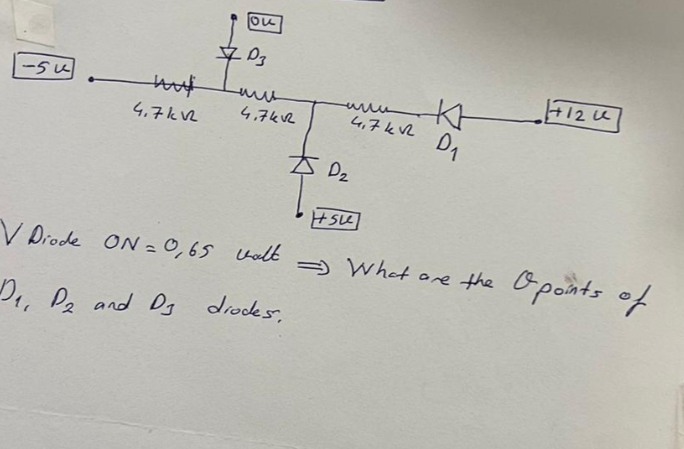 0V
D3
-5V
4.7kΩ
4.7kΩ
4.7kΩ
D1
+12V
D2
+5V
V Diode ON = 0,65 volt ⇒ What are the Q points of
D1, D2 and D3 diodes.